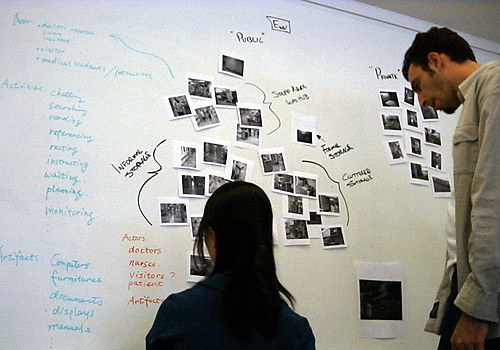 Actors
doctors nurses
visitor
medical students /
Activities: chatting
searching
reading
referencing
resting
instructing
waiting
planning
monitoring
Artifacts: Computers
furnitures
documents
displays
manuals
"PUBLIC"
Exam
STAFF AREA
INFORMAL
STORAGE
FORMAL
STORAGE
CLUTTERED
STORAGE
"PRIVATE"
Actors:
doctors
nurses
visitors ?
patient
Artifacts